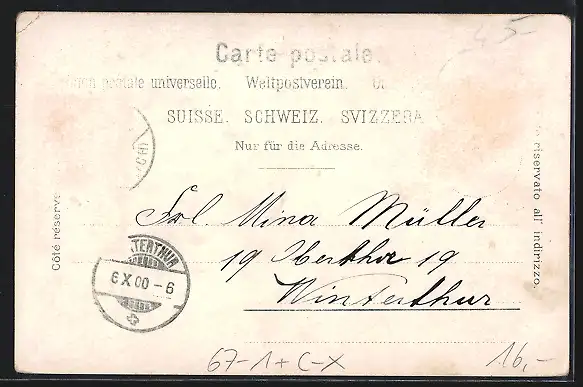 -45-
Carte postale.
postale universelle. Weltpostverein.
SUISSE. SCHWEIZ. SVIZZERA
Nur für die Adresse.
Côté réserve
riservato all' indirizzo.
Frl. Mina Müller
19 Oberthor 19
Winterthur
TERTHUR
6 X 00 - 6
67-1+C-X
16,-